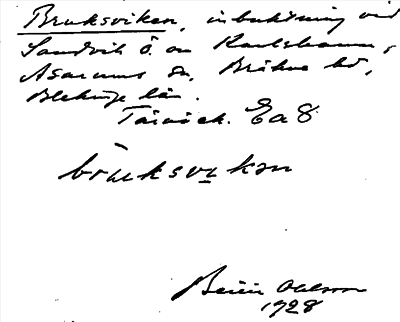 Bruksviken, inbuktning vid
Sandvik Ö. om Karlshamn,
Asarums sn, Bräkne hd,
Blekinge län.
Ea8
bruksvikən
Ohlson
1928